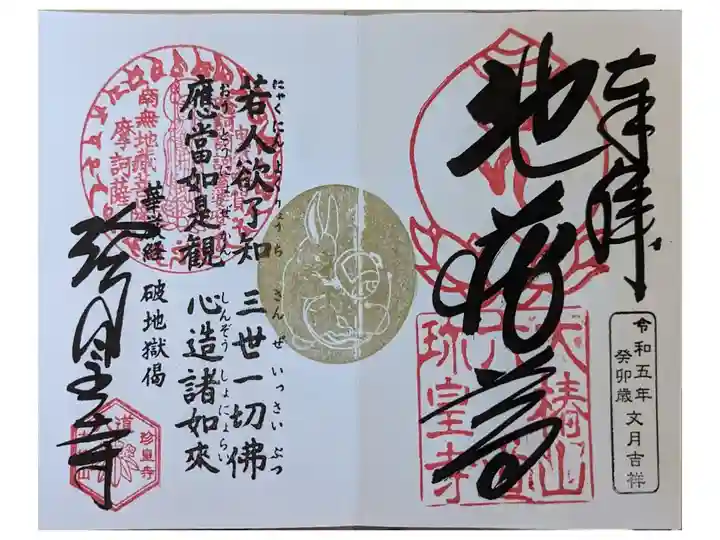 奉拝
令和五年
癸卯歳 文月吉祥
地蔵尊
大椿山
六道
珍皇寺
にゃくにんよくりょうち さんぜいっさいぶつ
若人欲了知 三世一切佛
おうとうにょぜかん しんぞうしょにょらい
應當如是觀 心造諸如來
華厳経 破地獄偈
南無地蔵菩薩
摩訶薩
珍皇寺
珍皇寺